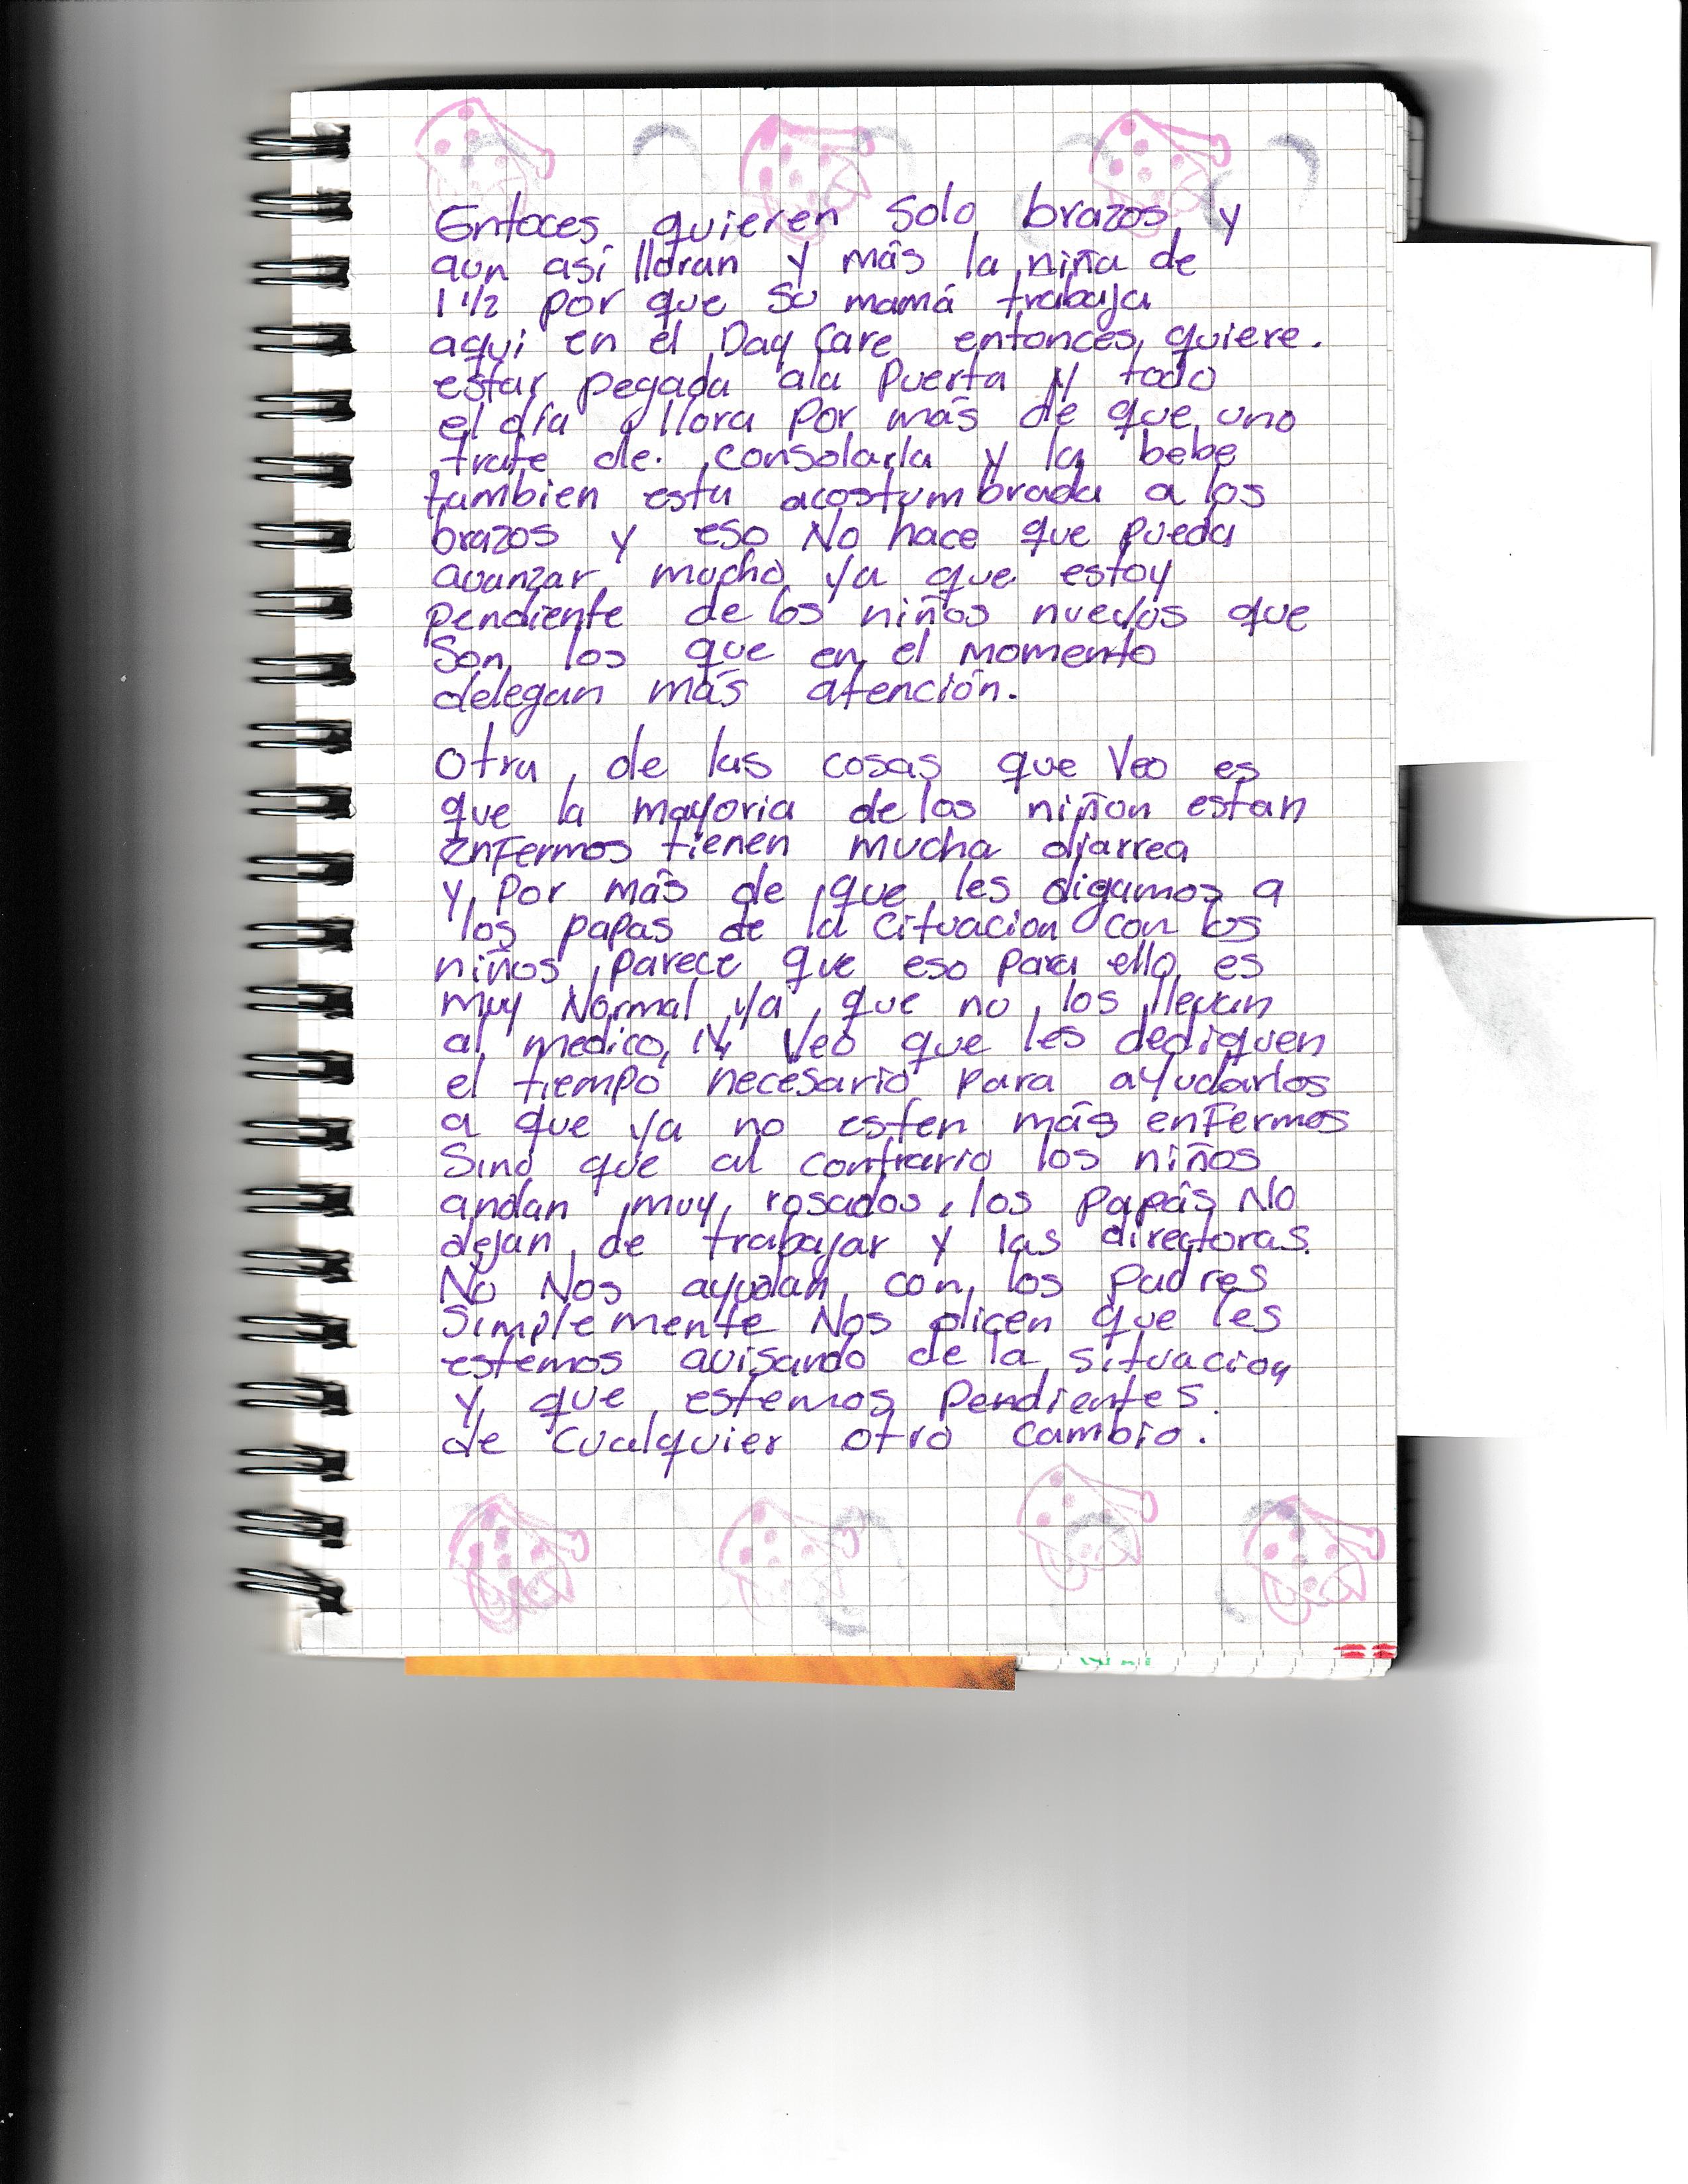 Entoces quieren solo brazos y
aun asi lloran y más la niña de
1 1/2 por que su mamá trabaja
aqui en el Day Care entonces quiere.
estar pegada ala puerta y todo
el día llora por más de que uno
trate de. consolarla y la bebe
tambien esta acostumbrada a los
brazos y eso No hace que pueda
avanzar mucho ya que estoy
pendiente de los niños nuevos que
Son los que en el momento
delegan más atención.
Otra de las cosas que Veo es
que la mayoria de los niñon estan
enFermos tienen mucha diarrea
y por más de que les digamos a
los papas de la cituacion con los
niños parece que eso para ello es
muy Normal ya que no los llevan
al medico, Ni Veo que les dediquen
el tiempo necesario para ayudarlos
a que ya no esten más enFermos
Sino que al contrario los niños
andan muy rosados, los papás No
dejan de trabajar y las directoras.
No Nos ayudan con los padres
Simplemente Nos dicen que les
estemos avisando de la situacion
y que estemos pendientes.
de cualquier otro cambio.